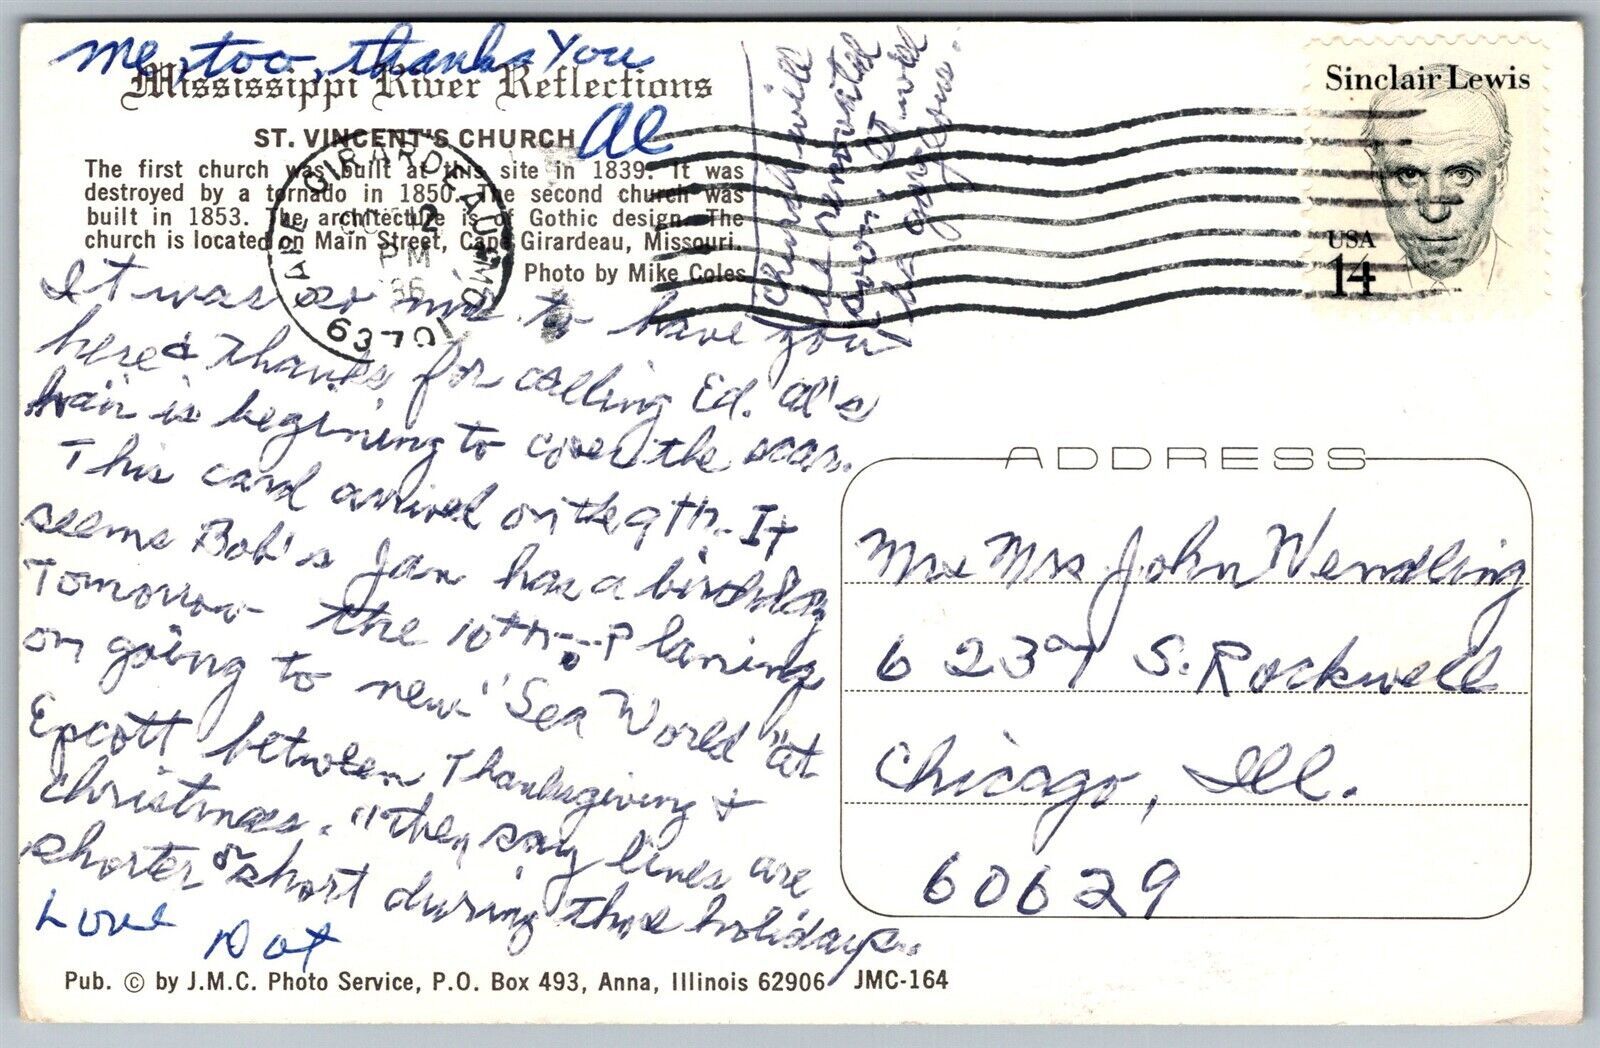 me, too, thanks You
Al
Mississippi River Reflections
ST. VINCENT'S CHURCH
The first church was built at this site in 1839. It was
destroyed by a tornado in 1850. The second church was
built in 1853. The architecture is of Gothic design. The
church is located on Main Street, Cape Girardeau, Missouri.
Photo by Mike Coles
CAPE GIRARDEAU, MO
OCT 12
PM
63701
Church will
be renovated
soon. It will
be gorgeous.
Sinclair Lewis
USA
14
It was so nice to have you
here & thanks for calling Ed. Al's
hair is begining to cover the scar.
This card arrived on the 9th. It
seems Bob's Jan has a birthday
Tomorrow the 10th. Planing
on going to new "Sea World" at
Epcott between Thanksgiving &
Christmas. "they say lines are
shorter or short during those holidays.
Love Dot
ADDRESS
Mr & Mrs John Wendling
6239 S. Rockwell
Chicago, Ill.
60629
Pub. © by J.M.C. Photo Service, P.O. Box 493, Anna, Illinois 62906 JMC-164